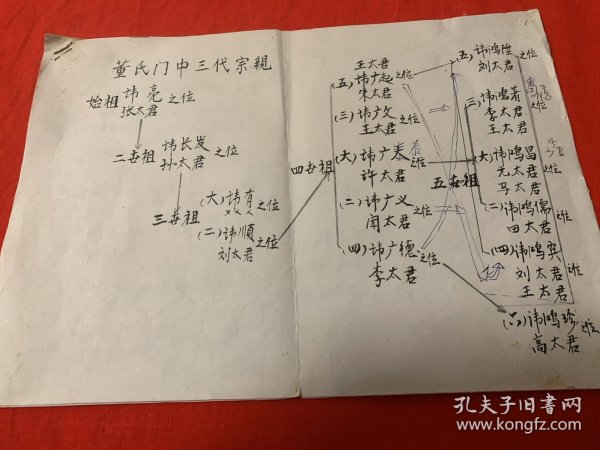 董氏门中三代宗親
始祖 讳亮 之位
张太君
二世祖 讳长发 之位
孙太君
三世祖 (大)讳有 之位
×× ×
(二)讳順 之位
刘太君
四世祖
王太君
(五)讳广起 之位
朱太君
(三)讳广文 之位
王太君
(大)讳广泰 之位
泰
许太君
(二)讳广义 之位
闫太君
(四)讳广德 之位
李太君
五世祖
(五)讳鸿陞 之位
刘太君
(三)讳鸿著 之位
李太君
王太君
(大)讳鸿昌 之位
元太君
马太君
(二)讳鸿儒 之位
田太君
(四)讳鸿宾 之位
刘太君
王太君
(六)讳鸿珍 之位
高太君
孔夫子旧书网
www.kongfz.com